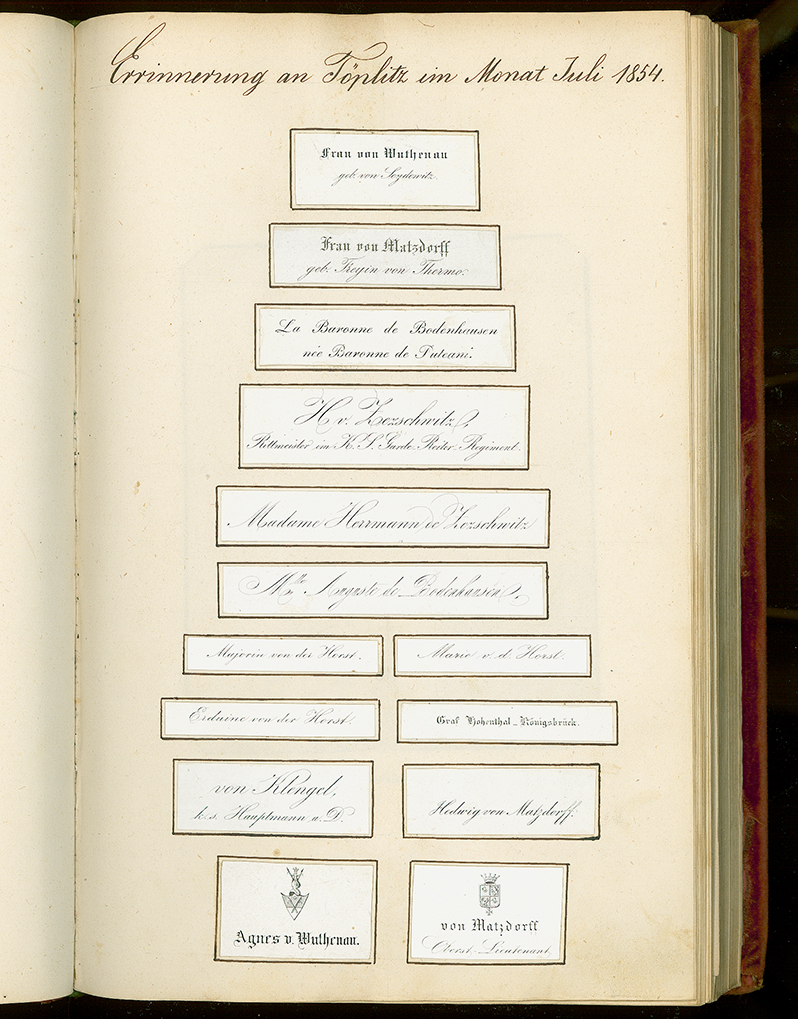 Errinnerung an Töplitz im Monat Juli 1854.
Frau von Wuthenau
geb. von Seydewitz.
Frau von Matzdorff
geb. Freyin von Thermo.
La Baronne de Bodenhausen
née Baronne de Puteani.
H. v. Zezschwitz,
Rittmeister im K. S. Garde Reiter-Regiment.
Madame Herrmann de Zezschwitz
Mlle Auguste de Bodenhausen.
Majorin von der Horst.
Marie v. d. Horst.
Erduine von der Horst.
Graf Hohenthal-Königsbrück.
von Klengel,
k. s. Hauptmann a. D.
Hedwig von Matzdorff.
Agnes v. Wuthenau.
von Matzdorff
Oberst-Lieutenant.